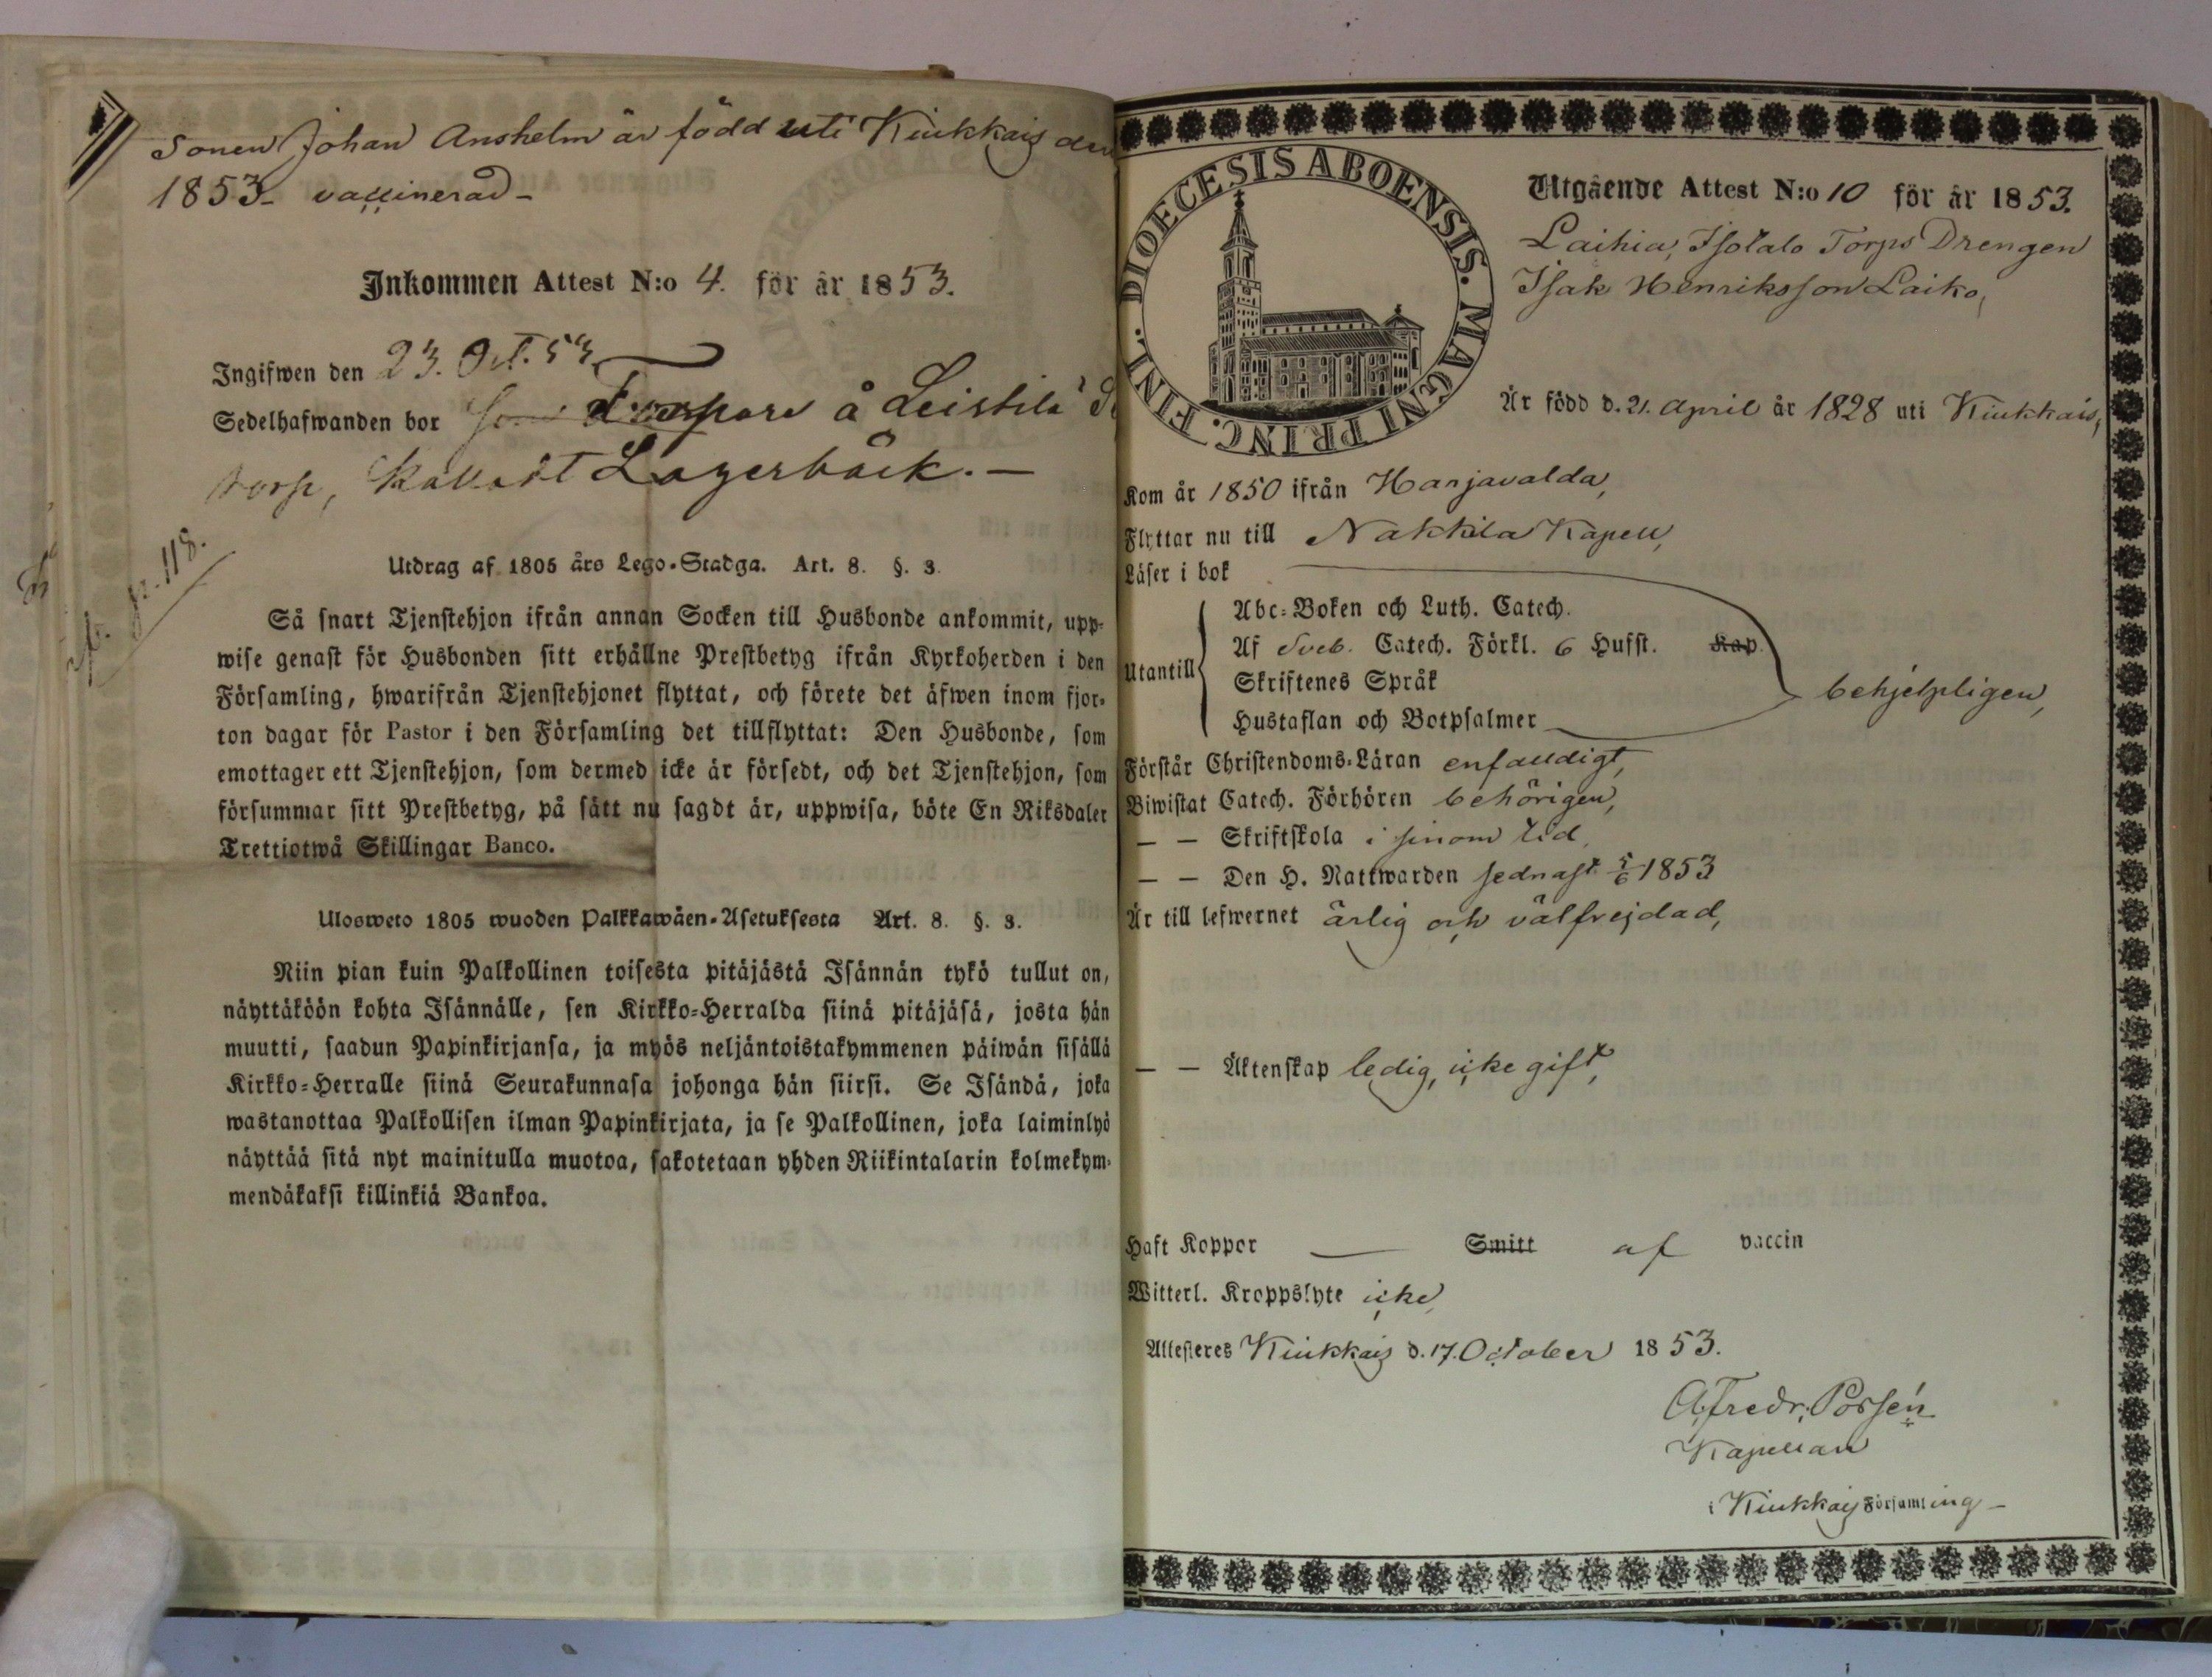 Sonen Johan Anshelm är född uti Kiukkais den
1853 - vaccinerad -
Inkommen Attest N:o 4. för år 1853.
Ingifwen den 23. Oct. 53
Sedelhafwanden bor som Torpare å Leistilä
torp, kalladt Lagerbäck. -
p. 118.
Utdrag af 1805 års Lego-Stadga. Art. 8. §. 3.
Så snart Tjenstehjon ifrån annan Socken till Husbonde ankommit, upp-
wise genast för Husbonden sitt erhållne Prestbetyg ifrån Kyrkoherden i den
Församling, hwarifrån Tjenstehjonet flyttat, och förete det äfwen inom fjor-
ton dagar för Pastor i den Församling det tillflyttat: Den Husbonde, som
emottager ett Tjenstehjon, som dermed icke är försedt, och det Tjenstehjon, som
försummar sitt Prestbetyg, på sätt nu sagdt är, uppwisa, böte En Riksdaler
Trettiotwå Skillingar Banco.
Ulosweto 1805 wuoden Palkkawäen-Asetuksesta Art. 8. §. 3.
Niin pian kuin Palkollinen toisesta pitäjästä Isännän tykö tullut on,
näyttäköön kohta Isännälle, sen Kirkko-Herralda siinä pitäjäsä, josta hän
muutti, saadun Papinkirjansa, ja myös neljäntoistakymmenen päiwän sisällä
Kirkko-Herralle siinä Seurakunnasa johonga hän siirsi. Se Isändä, joka
wastanottaa Palkollisen ilman Papinkirjata, ja se Palkollinen, joka laiminlyö
näyttää sitä nyt mainitulla muotoa, sakotetaan yhden Riikintalarin kolmekym-
mendäkaksi killinkiä Bankoa.
DIOECESIS ABOENSIS. MAGNI PRINC. FINL.
Utgående Attest N:o 10 för år 1853.
Laihia, Isotalo Torps Drengen
Isak Henriksson Laiko,
Är född d. 21. April år 1828 uti Kiukkais,
Kom år 1850 ifrån Harjavalda,
Flyttar nu till Nakkila Kapell,
Läser i bok
Utantill
Abc-Boken och Luth. Catech.
Af Sveb. Catech. Förkl. 6 Hufst. Kap.
Skriftenes Språk
Hustaflan och Botpsalmer
behjelpligen,
Förstår Christendoms-Läran enfaldigt,
Biwistat Catech. Förhören behörigen,
— — Skriftskola i sinom tid,
— — Den H. Nattwarden sednast 5/6 1853
Är till lefwernet ärlig och välfrejdad,
— — Äktenskap ledig, icke gift,
Haft Koppor — Smitt af vaccin
Witterl. Kroppslyte icke,
Attesteres Kiukkais d. 17. October 1853.
A. Fredr. Porsén
Kapellan
i Kiukkais Församling -